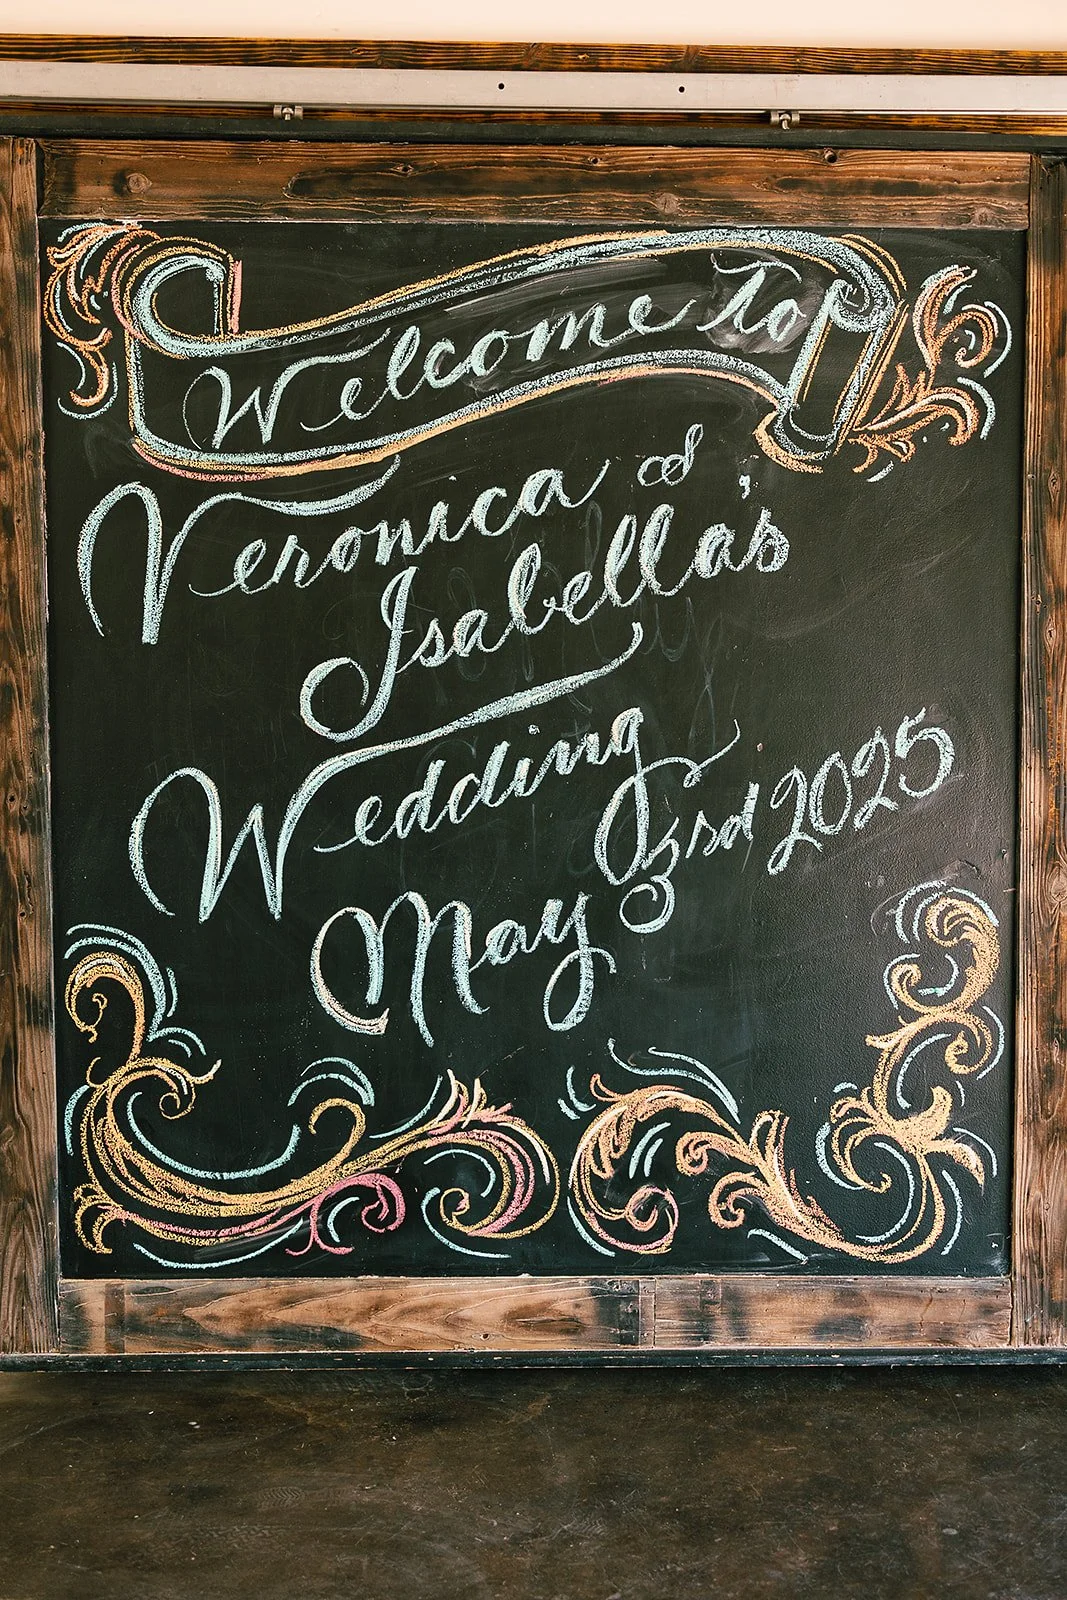 Welcome To
Veronica &
Isabella's
Wedding
May 3rd 2025